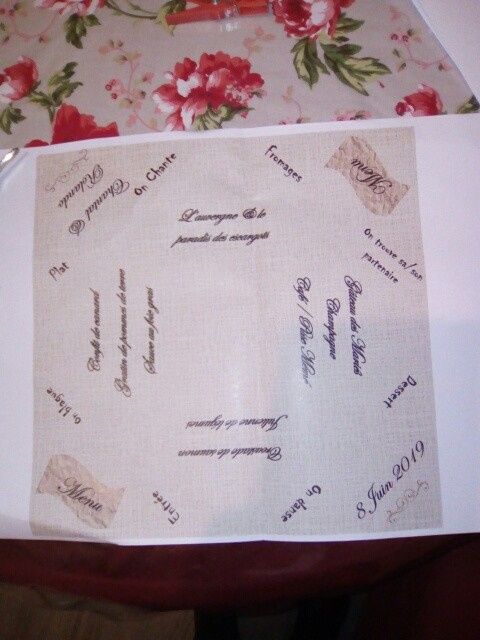 Chantal &
Rolande
On Chante
Fromages
Menu
L'auvergne & le
paradis des escargots
On trouve sa/son
partenaire
Plat
Confit de canard
Gratin de pommes de terre
Sauce au foie gras
Gâteau des Mariés
Champagne
Café /
Dessert
On blague
Croustade de saumon
Julienne de légumes
Menu
Entrée
On danse
8 Juin 2019